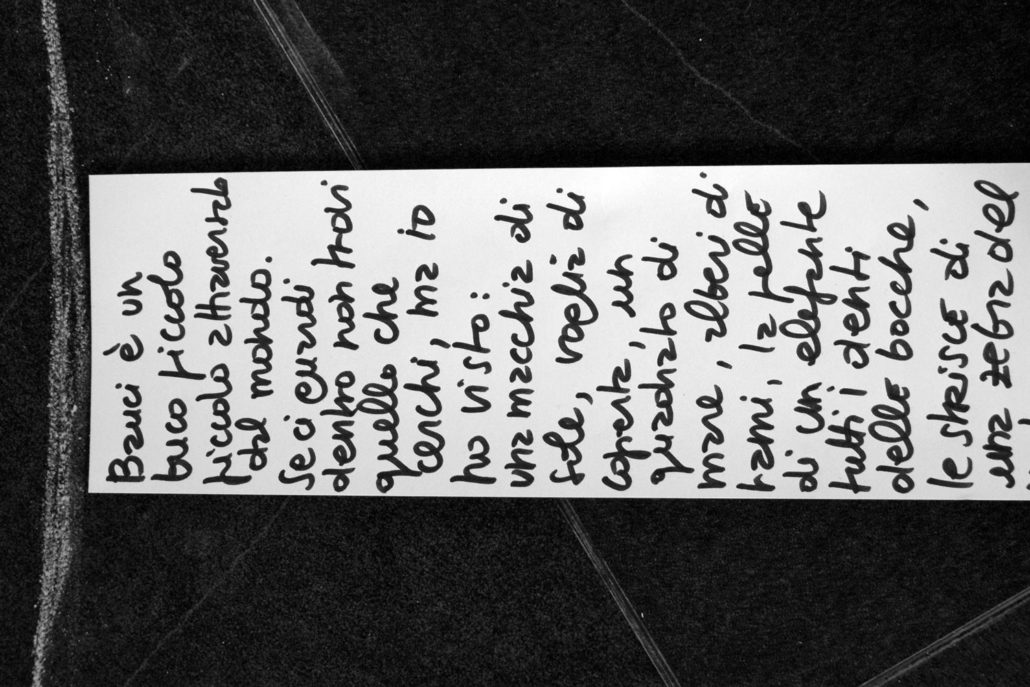 Bauci è un
buco piccolo
piccolo attraverso
dal mondo.
Se ci guardi
dentro non trovi
quello che
cerchi, ma io
ho visto:
una macchia di
sole, voglia di
coperta, un
guanto di
mare, alberi di
rami, la pelle
di un elefante
tutti i denti
delle bocche,
le strisce di
una zebra del